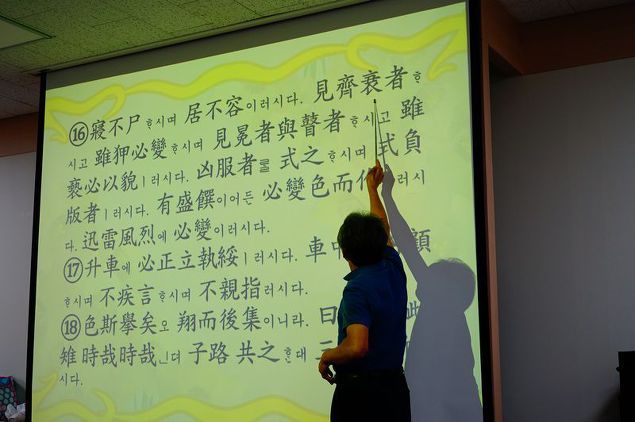 ⑯寢不尸ᄒᆞ시며 居不容이러시다. 見齊衰者ᄒᆞ
시고 雖狎必變ᄒᆞ시며 見冕者與瞽者ᄒᆞ시고 雖
褻必以貌ㅣ러시다. 凶服者ᄅᆞᆯ 式之ᄒᆞ시며 式負
版者ㅣ러시다. 有盛饌이어든 必變色而 러시
다. 迅雷風烈에 必變이러시다.
⑰升車에 必正立執綏ㅣ러시다. 車 顧
ᄒᆞ시며 不疾言ᄒᆞ시며 不親指러시다.
⑱色斯擧矣오 翔而後集이니라. 曰
雉時哉時哉ㄴ뎌 子路共之ᄒᆞᆫ대
시다.